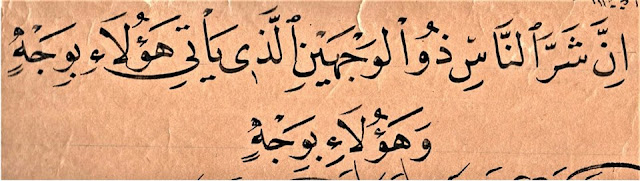 اِنَّ شَرَّ النَّاسِ ذُو الْوَجْهَيْنِ الَّذِى يَأْتِى هَؤُلَاءِ بِوَجْهٍ
وَهَؤُلَاءِ بِوَجْهٍ